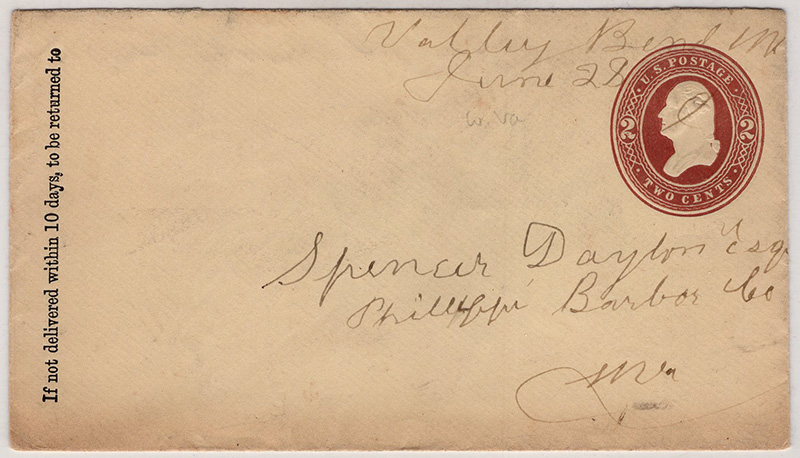 Valley Bend W Va
June 28
W. Va
U.S. POSTAGE
2 2
TWO CENTS
Spencer Dayton Esq
Phillippi Barbor Co
W Va
If not delivered within 10 days, to be returned to